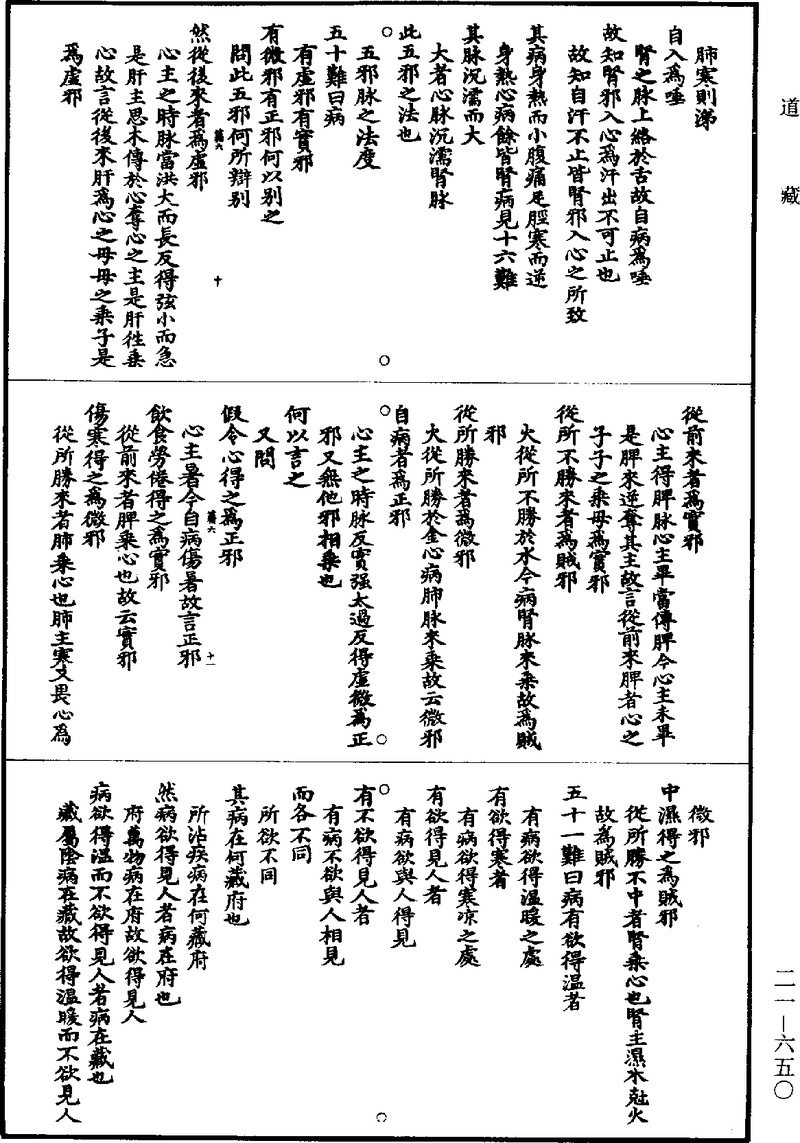 道藏
肺寒則涕
自入爲唾
腎之脉上絡於舌故自病爲唾
故知腎邪入心爲汗出不可止也
故知自汗不止皆腎邪入心之所致
其病身熱而小腹痛足脛寒而逆
身熱心病餘皆腎病見十六難
其脉沉濡而大
大者心脉沉濡腎脉
此五邪之法也
五邪脉之法度
五十難曰病
有虛邪有實邪
有微邪有正邪何以别之
問此五邪何所辯别
然從後來者爲虛邪
心主之時脉當洪大而長反得弦小而急
是肝主思木傳於心奪心之主是肝徃乗
心故言從後來肝爲心之母母之乗子是
爲虛邪
從前來者爲實邪
心主得脾脉心主畢當傳脾今心主未畢
是脾來逆奪其主故言從前來脾者心之
子子之乗母爲實邪
從所不勝來者爲賊邪
火從所不勝於水今病腎脉來乗故爲賊
邪
從所勝來者爲微邪
火從所勝於金心病肺脉來乗故云微邪
自病者爲正邪
心主之時脉反實强太過反得虛微爲正
邪又無他邪相乗也
何以言之
又問
假令心得之爲正邪
心主暑今自病傷暑故言正邪
飲食勞倦得之爲實邪
從前來者脾乗心也故云實邪
傷寒得之爲微邪
從所勝來者肺乗心也肺主寒又畏心爲
微邪
中濕得之爲賊邪
從所勝不中者腎乗心也腎主濕水尅火
故爲賊邪
五十一難曰病有欲得温者
有病欲得温暖之處
有欲得寒者
有病欲得寒凉之處
有欲得見人者
有病欲與人得見
有不欲得見人者
有病不欲與人相見
而各不同
所欲不同
其病在何藏府也
所沾疾病在何藏府
然病欲得見人者病在府也
府萬物病在府故欲得見人
病欲得温而不欲得見人者病在藏也
藏屬陰病在藏故欲得温暖而不欲見人
二一—六五〇